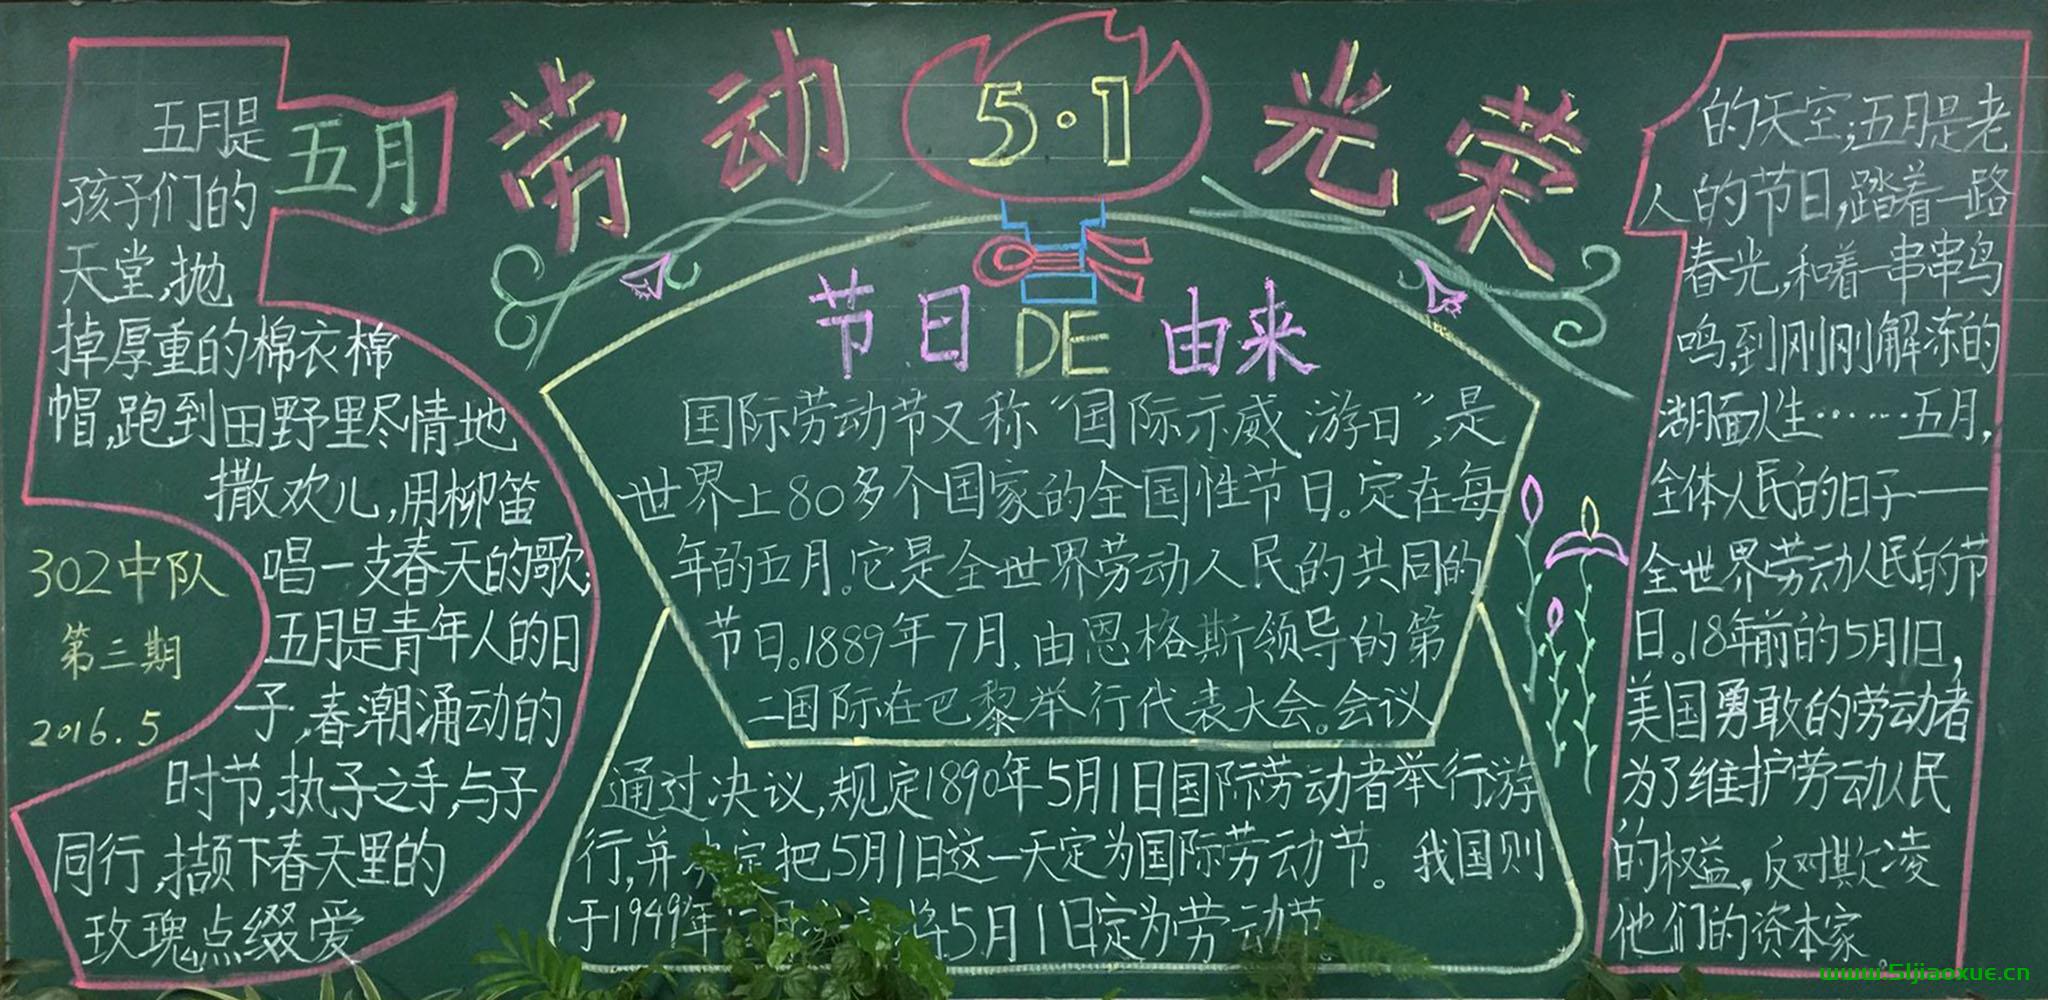 劳动 5·1 光荣
五月
五月是
孩子们的
天堂,抛
掉厚重的棉衣棉
帽,跑到田野里尽情地
撒欢儿,用柳笛
唱一支春天的歌;
五月是青年人的日
子,春潮涌动的
时节,执子之手,与子
同行,撷下春天里的
玫瑰点缀爱
302中队
第三期
2016.5
节日DE由来
国际劳动节又称“国际示威游日”,是
世界上80多个国家的全国性节日。定在每
年的五月。它是全世界劳动人民的共同的
节日。1889年7月,由恩格斯领导的第
二国际在巴黎举行代表大会。会议
通过决议,规定1890年5月1日国际劳动者举行游
行,并决定把5月1日这一天定为国际劳动节。我国则
于1949年 将5月1日定为劳动节
的天空;五月是老
人的节日,踏着一路
春光,和着一串串鸟
鸣,到刚刚解冻的
湖面人生……五月,
全体人民的日子——
全世界劳动人民的节
日。18年前的5月1日,
美国勇敢的劳动者
为了维护劳动人民
的权益,反对欺凌
他们的资本家。
www.51jiaoxue.cn